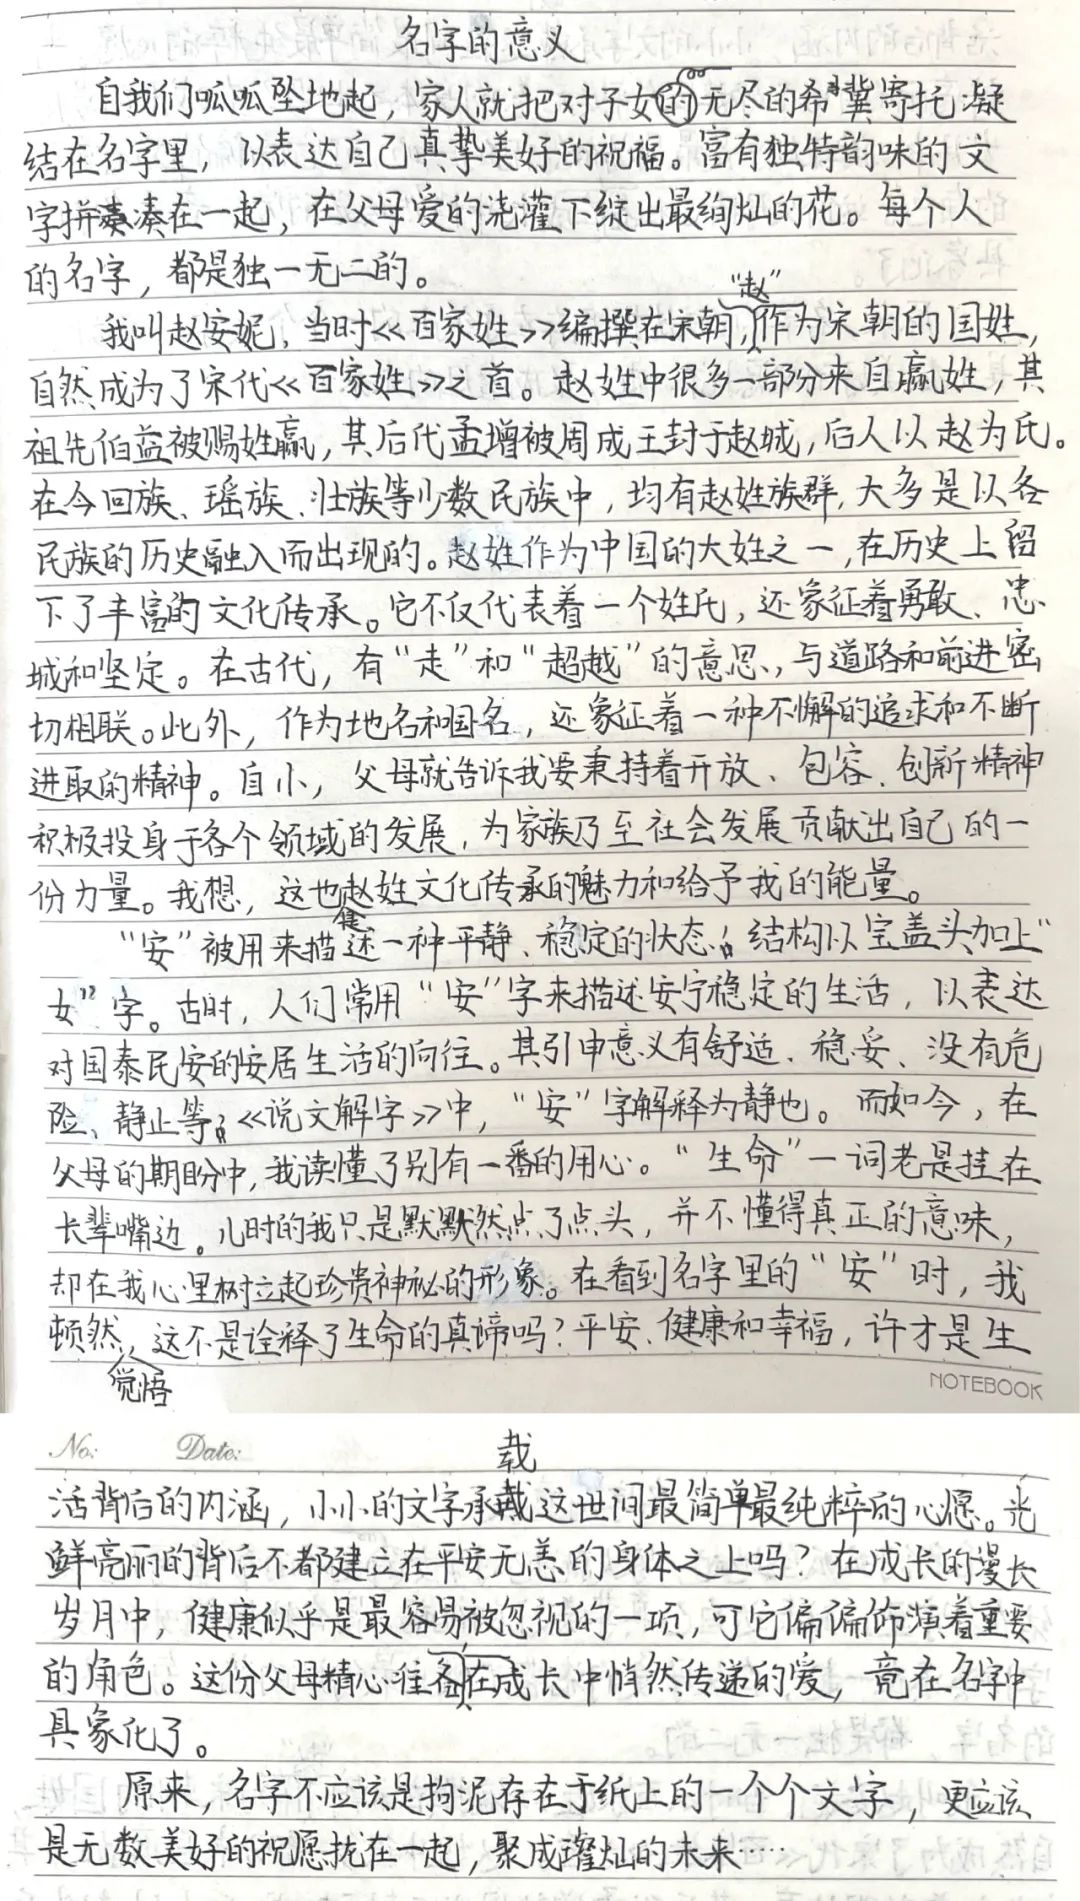 名字的意义
自我们呱呱坠地起，家人就把对子女的无尽的希冀寄托凝
结在名字里，以表达自己真挚美好的祝福。富有独特韵味的文
字拼凑在一起，在父母爱的浇灌下绽出最绚灿的花。每个人
的名字，都是独一无二的。
“赵”
我叫赵安妮，当时《百家姓》编撰在宋朝，作为宋朝的国姓，
自然成为了宋代《百家姓》之首。赵姓中很多一部分来自嬴姓，其
祖先伯益被赐姓嬴，其后代孟增被周成王封于赵城，后人以赵为氏。
在今回族、瑶族、壮族等少数民族中，均有赵姓族群，大多是以各
民族的历史融入而出现的。赵姓作为中国的大姓之一，在历史上留
下了丰富的文化传承。它不仅代表着一个姓氏，还象征着勇敢、忠
城和坚定。在古代，有“走”和“超越”的意思，与道路和前进密
切相联。此外，作为地名和国名，还象征着一种不懈的追求和不断
进取的精神。自小，父母就告诉我要秉持着开放、包容、创新精神
积极投身于各个领域的发展，为家族乃至社会发展贡献出自己的一
份力量。我想，这也赵姓文化传承的魅力和给予我的能量。
“安”被用来描述一种平静、稳定的状态，结构以宝盖头加上“
女”字。古时，人们常用“安”字来描述安宁稳定的生活，以表达
对国泰民安的安居生活的向往。其引申意义有舒适、稳妥、没有危
险、静止等，《说文解字》中，“安”字解释为静也。而如今，在
父母的期盼中，我读懂了别有一番的用心。“生命”一词老是挂在
长辈嘴边。儿时的我只是默默然点了点头，并不懂得真正的意味，
却在我心里树立起珍贵神秘的形象。在看到名字里的“安”时，我
顿然，这不是诠释了生命的真谛吗？平安、健康和幸福，许才是生
觉悟
NOTEBOOK
No: Date:
载
活背后的内涵，小小的文字承戴这世间最简单最纯粹的心愿。光
鲜亮丽的背后不都建立在平安无恙的身体之上吗？在成长的漫长
岁月中，健康似乎是最容易被忽视的一项，可它偏偏饰演着重要
的角色。这份父母精心准备在成长中悄然传递的爱，竟在名字中
具象化了。
原来，名字不应该是拘泥存在于纸上的一个个文字，更应该
是无数美好的祝愿拢在一起，聚成璀灿的未来……